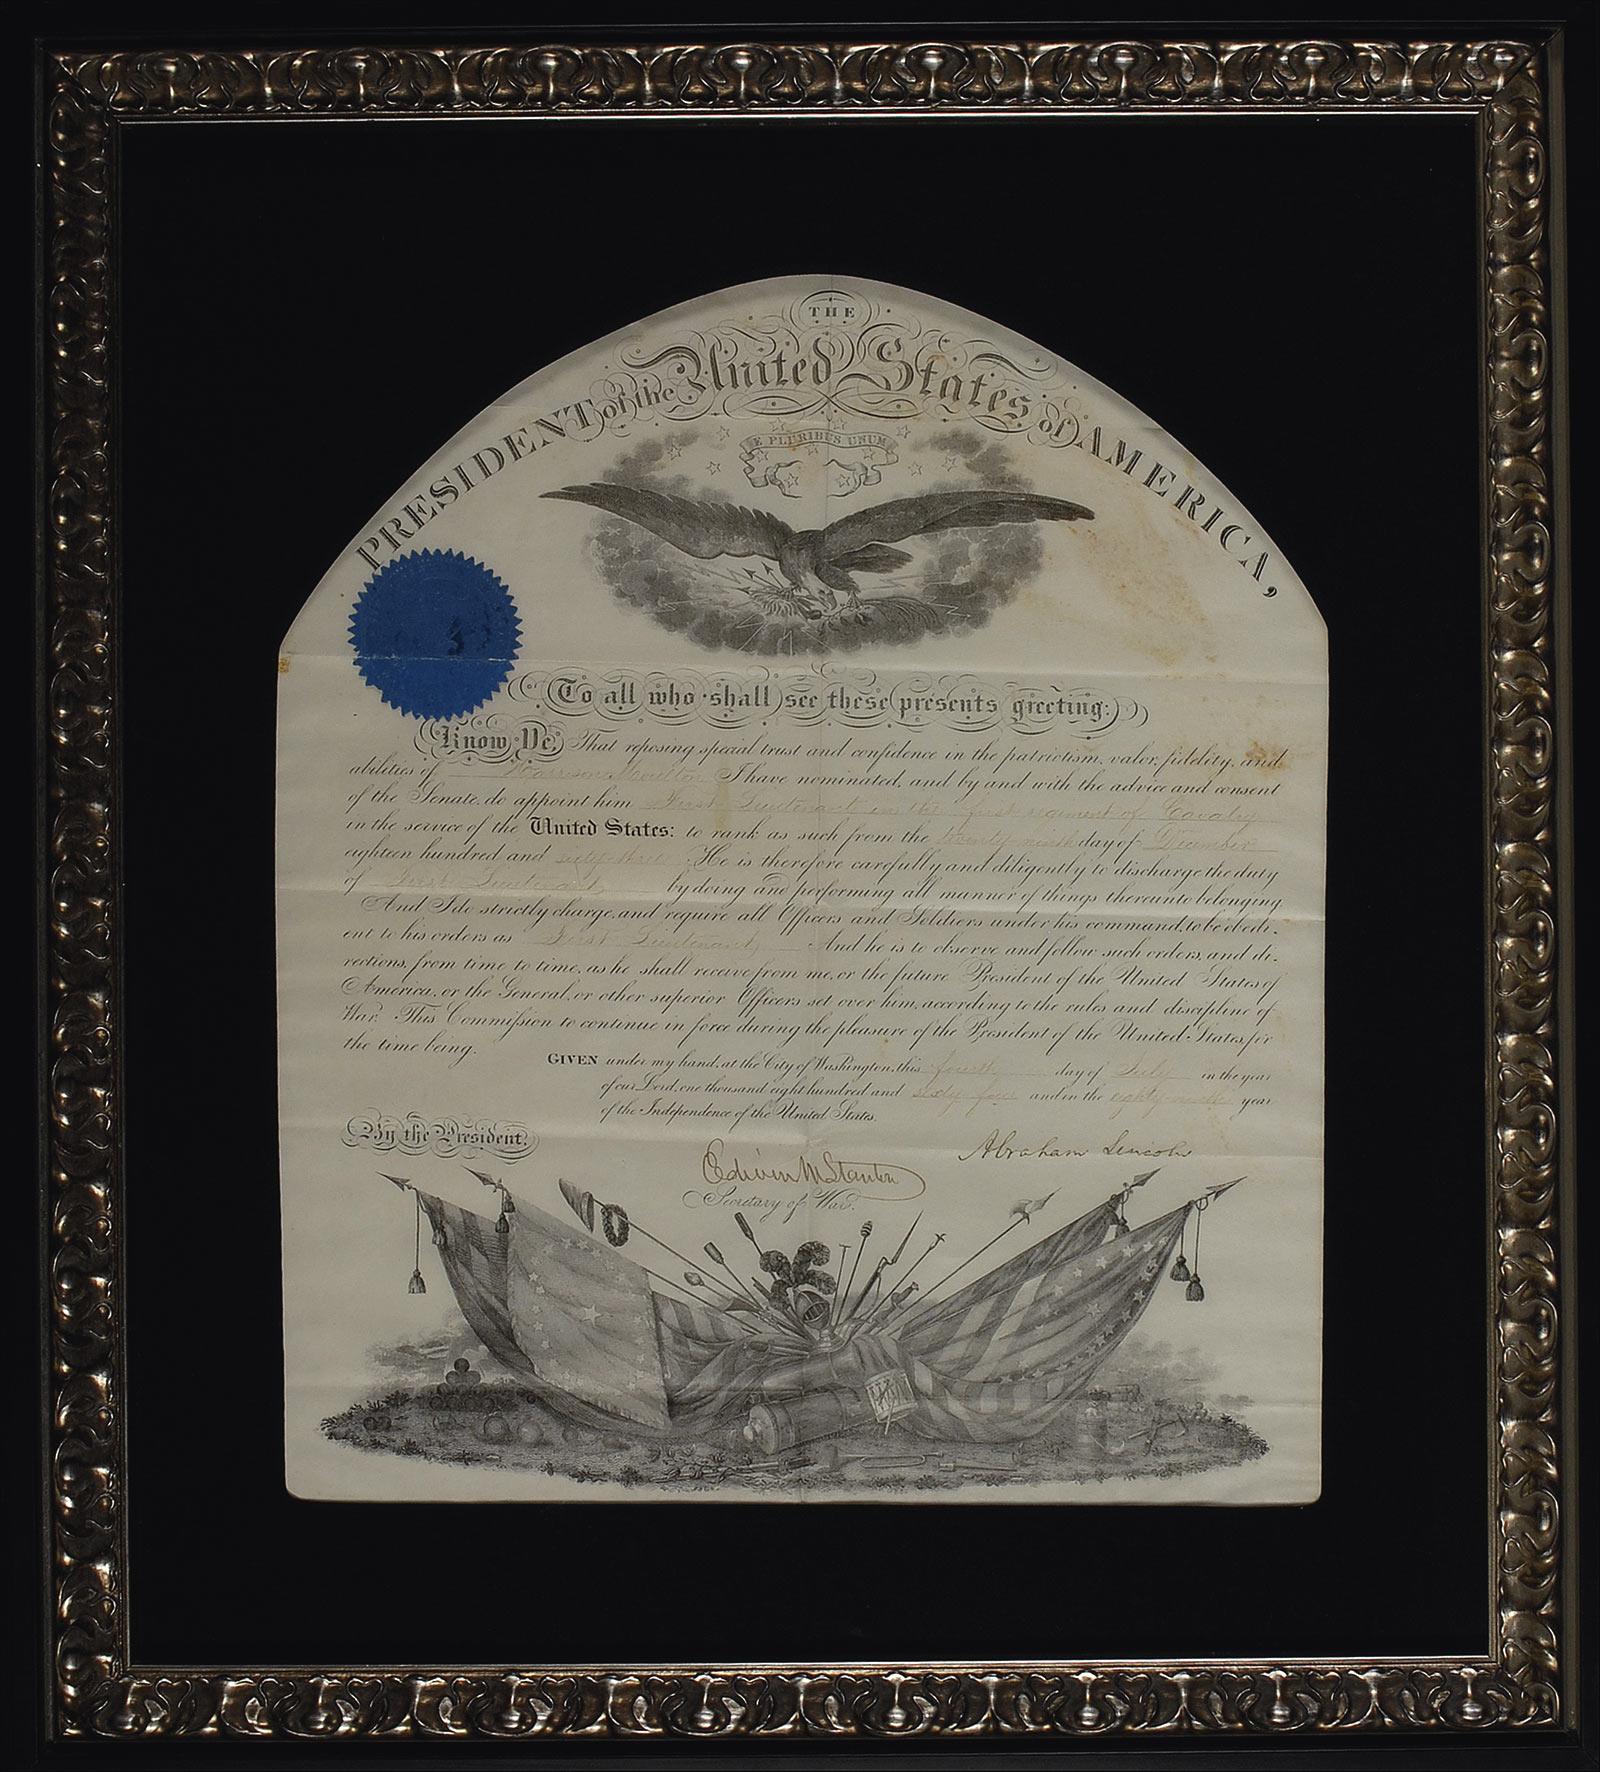 THE
PRESIDENT of the United States of AMERICA,
E PLURIBUS UNUM
To all who shall see these presents greeting:
Know Ye, That reposing special trust and confidence in the patriotism, valor, fidelity, and
abilities of Harrison Moulton I have nominated, and by and with the advice and consent
of the Senate, do appoint him First Lieutenant in the first regiment of Cavalry
in the service of the United States: to rank as such from the twenty ninth day of December
eighteen hundred and sixty three. He is therefore carefully and diligently to discharge the duty
of First Lieutenant by doing and performing all manner of things thereunto belonging.
And I do strictly charge, and require all Officers and Soldiers under his command, to be obedi-
ent to his orders as First Lieutenant And he is to observe and follow such orders, and di-
rections, from time to time, as he shall receive from me, or the future President of the United States of
America, or the General, or other superior Officers set over him, according to the rules and discipline of
War. This Commission to continue in force during the pleasure of the President of the United States, for
the time being.
GIVEN under my hand, at the City of Washington, this fourth day of July in the year
of our Lord, one thousand eight hundred and sixty four and in the eighty ninth year
of the Independence of the United States.
By the President.
Abraham Lincoln
Edwin M Stanton
Secretary of War.